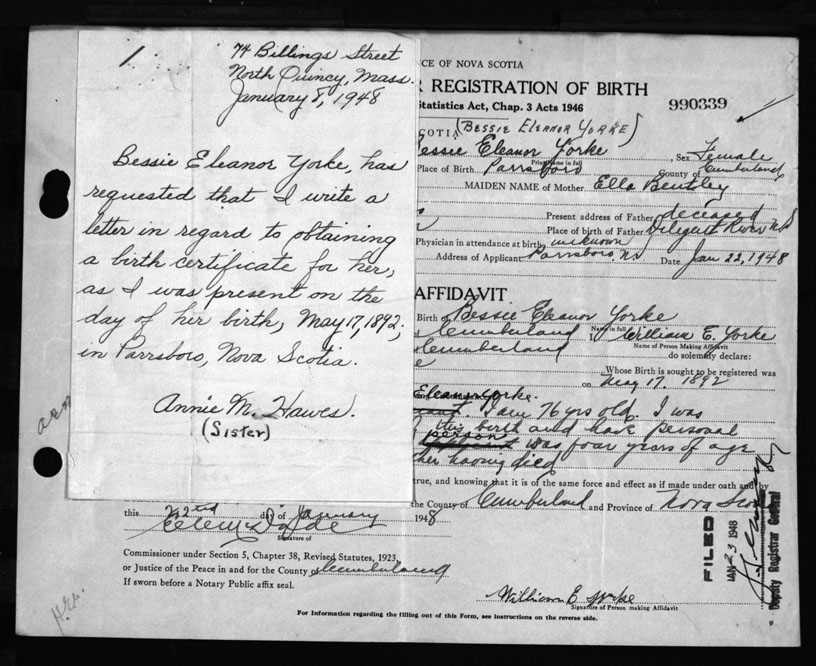 1
74 Billings Street
North Quincy, Mass.
January 8, 1948
Bessie Eleanor Yorke, has
requested that I write a
letter in regard to obtaining
a birth certificate for her,
as I was present on the
day of her birth, May 17, 1892,
in Parrsboro, Nova Scotia.
Annie M. Hawes.
(Sister)
CE OF NOVA SCOTIA
R REGISTRATION OF BIRTH
Statistics Act, Chap. 3 Acts 1946
990339
SCOTIA (BESSIE ELEANOR YORKE)
essie Eleanor Yorke , Sex Female
Print name in full
Place of Birth Parrsboro County of Cumberland
MAIDEN NAME of Mother Ella Bentley
Present address of Father deceased
Place of birth of Father River N.S
Physician in attendance at birth unknown
Address of Applicant Parrsboro, NS Date Jan 22, 1948
AFFIDAVIT
Birth of Bessie Eleanor Yorke
Cumberland I, William E. Yorke
Name in full
Name of Person Making Affidavit
Cumberland do solemnly declare:
Whose Birth is sought to be registered was
on May 17 1892
Eleanor Yorke.
I am 76 yrs old. I was
this birth and have personal
person was four years of age
her having died
true, and knowing that it is of the same force and effect as if made under oath and by
the County of Cumberland and Province of Nova Sco
this 22nd day of January 1948
Signature of
Commissioner under Section 5, Chapter 38, Revised Statutes, 1923,
or Justice of the Peace in and for the County of Cumberland
If sworn before a Notary Public affix seal.
FILED
JAN 23 1948
Deputy Registrar General
William E Yorke
Signature of Person making Affidavit
For Information regarding the filling out of this Form, see instructions on the reverse side.